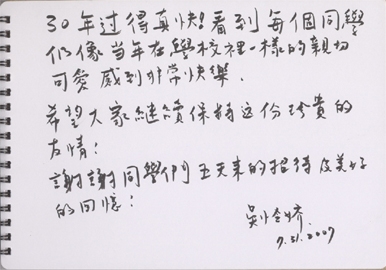 30年过得真快!看到每個同學
们像当年在學校裡一樣的親切
可愛感到非常快樂.
希望大家継續保持这份珍貴的
友情!
謝謝同學們五天来的招待及美好
的回憶!
7.31.2007